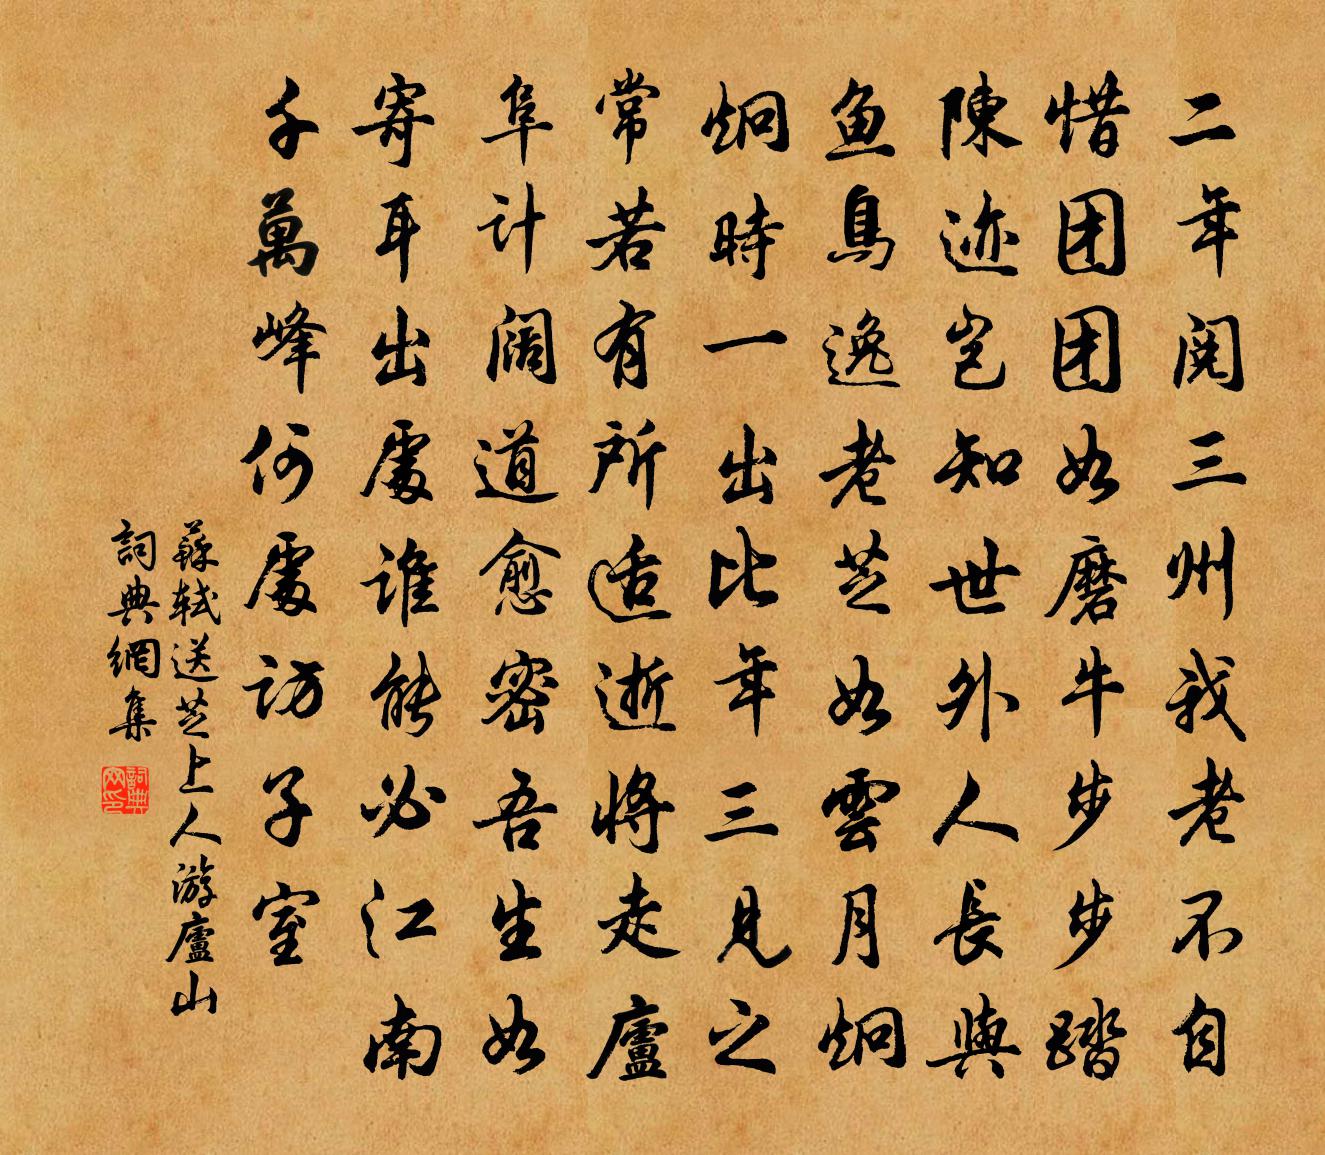 二年閱三州我老不自
惜团团如磨牛步步踏
陳迹岂知世外人長與
鱼鳥逸老芝如雲月炯
炯時一出比年三見之
常若有所适逝將走廬
阜计阔道愈密吾生如
寄耳出處谁能必江南
千萬峰何處访子室
蘇轼送芝上人游廬山
詞典網集
詞典網印